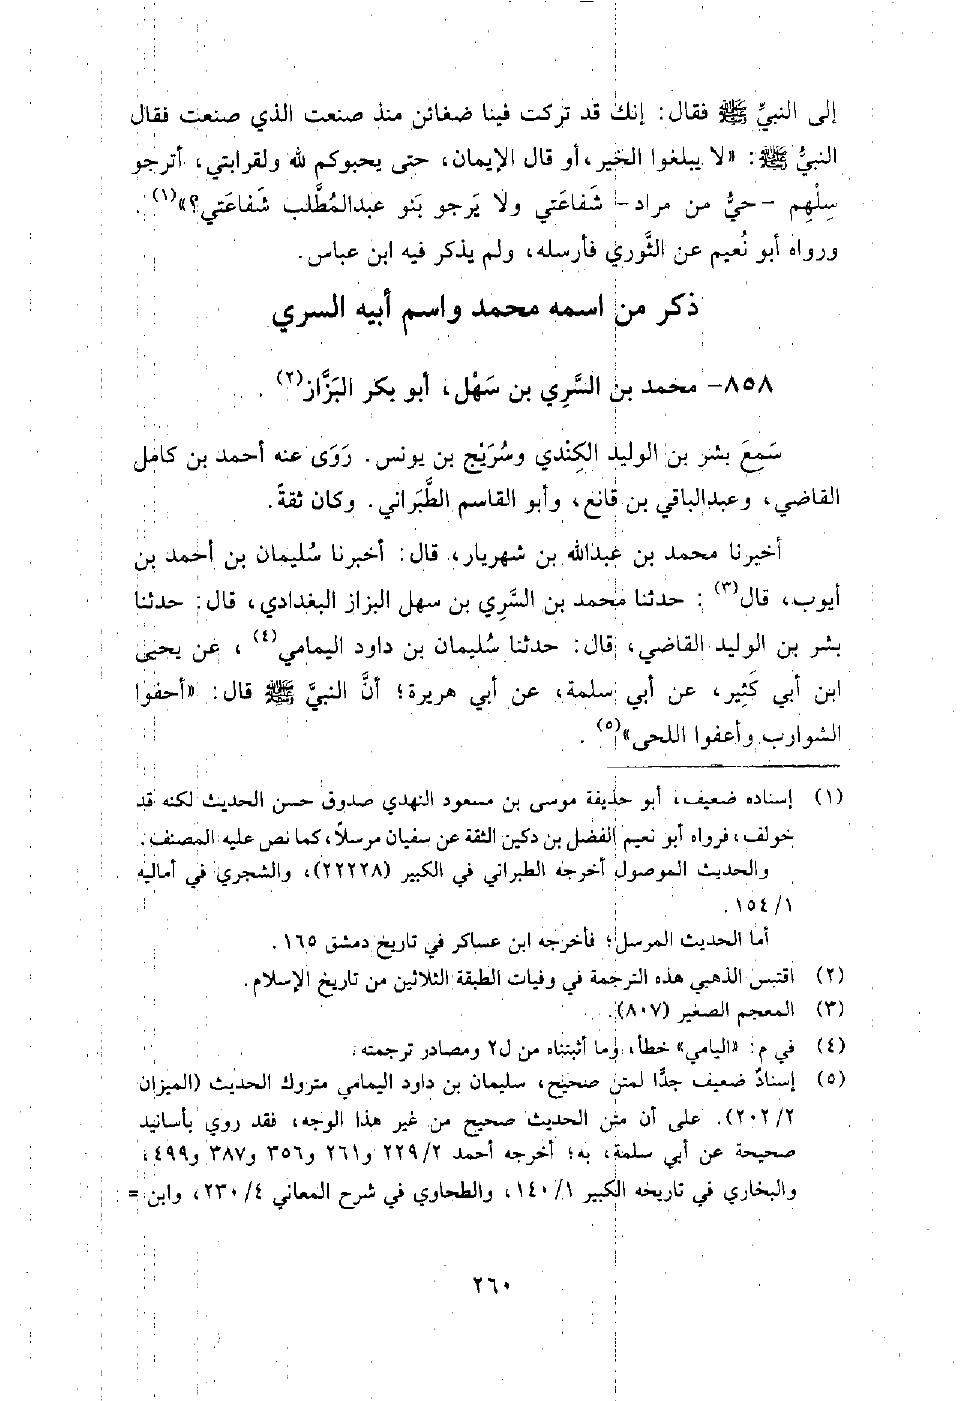 إلى النبيِّ ﷺ فقال: إنك قد تركت فينا ضغائن منذ صنعت الذي صنعت فقال
النبيُّ ﷺ: «لا يبلغوا الخير، أو قال الإيمان، حتى يحبوكم لله ولقرابتي، أترجو
سِلْهِم -حيٌّ من مراد- شَفاعَتي ولا يَرجو بَنو عبدالمُطَّلب شَفاعَتي؟»(١).
ورواه أبو نُعيم عن الثَّوري فأرسله، ولم يذكر فيه ابن عباس.
ذكر من اسمه محمد واسم أبيه السري
٨٥٨- محمد بن السَّرِي بن سَهْل، أبو بكر البَزَّاز(٢).
سَمِعَ بشر بن الوليد الكِنْدي وسُرَيْج بن يونس. رَوَى عنه أحمد بن كامل
القاضي، وعبدالباقي بن قانع، وأبو القاسم الطَّبَراني. وكان ثقةً.
أخبرنا محمد بن عبدالله بن شهريار، قال: أخبرنا سُليمان بن أحمد بن
أيوب، قال(٣): حدثنا محمد بن السَّرِي بن سهل البزاز البغدادي، قال: حدثنا
بشر بن الوليد القاضي، قال: حدثنا سُليمان بن داود اليمامي(٤)، عن يحيى
ابن أبي كَثِير، عن أبي سلمة، عن أبي هريرة؛ أنَّ النبيَّ ﷺ قال: «أحفوا
الشوارب وأعفوا اللحى»(٥).
(١) إسناده ضعيف، أبو حذيفة موسى بن مسعود النهدي صدوق حسن الحديث لكنه قد
خولف، فرواه أبو نعيم الفضل بن دكين الثقة عن سفيان مرسلاً، كما نص عليه المصنف.
والحديث الموصول أخرجه الطبراني في الكبير (٢٢٢٢٨)، والشجري في أماليه
١/ ١٥٤.
أما الحديث المرسل؛ فأخرجه ابن عساكر في تاريخ دمشق ١٦٥.
(٢) اقتبس الذهبي هذه الترجمة في وفيات الطبقة الثلاثين من تاريخ الإسلام.
(٣) المعجم الصغير (٨٠٧).
(٤) في م: «اليامي» خطأ، وما أثبتناه من ل٢ ومصادر ترجمته.
(٥) إسنادٌ ضعيف جدًّا لمتن صحيح، سليمان بن داود اليمامي متروك الحديث (الميزان
٢/ ٢٠٢). على أن متن الحديث صحيح من غير هذا الوجه، فقد روي بأسانيد
صحيحة عن أبي سلمة، به؛ أخرجه أحمد ٢/ ٢٢٩ و٢٦١ و٣٥٦ و٣٨٧ و٤٩٩،
والبخاري في تاريخه الكبير ١/ ١٤٠، والطحاوي في شرح المعاني ٤/ ٢٣٠، وابن =
٢٦٠